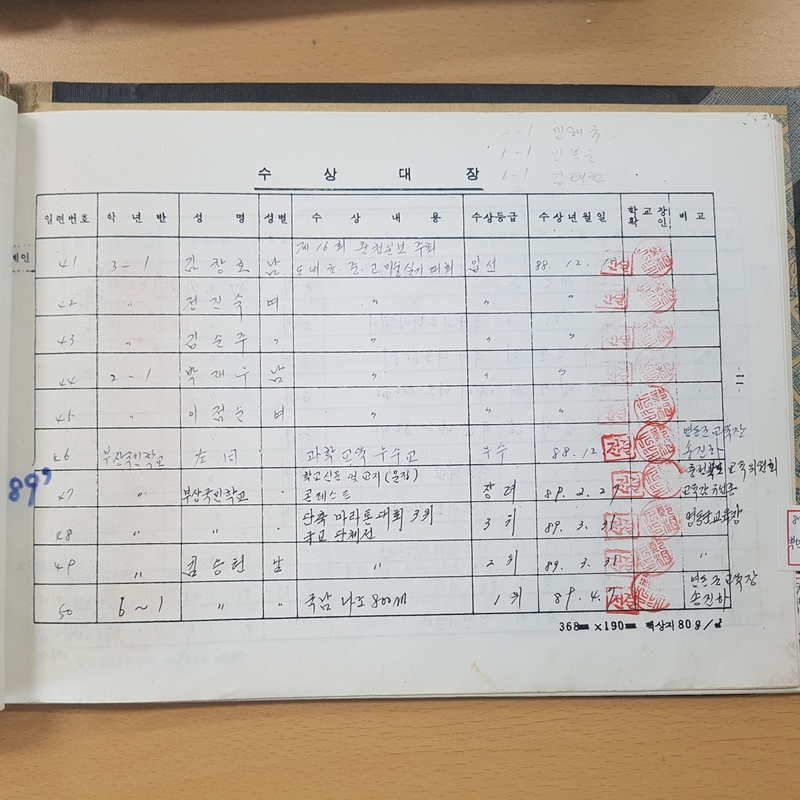 2-1
6-1
수 상 대 장
일련번호 학 년 반 성 명 성별 수 상 내 용 수상등급 수상년월일 학교장 확인 비고
41 3-1 김창호 남 제16회 충전일보 주최 도내 초·중·고 미술실기 대회 입선 88. 12.
42 〃 정진숙 여 〃 〃 〃
43 〃 김순주 〃 〃 〃 〃
44 2-1 박재우 남 〃 〃 〃
45 〃 이점순 여 〃 〃
46 부상국민학교 左同 과학교육 우수교 우수 88. 12 영동군교육장 송진하
89'
47 〃 부상국민학교 〃 학교신문 및 교지(문집) 콘테스트 장려 89. 2. 2 충전북도교육위원회
48 〃 〃 〃 단축 마라톤대회 3위 국교 단체전 3위 89. 3. 31 영동군교육장
49 〃 김승현 남 〃 2위 89. 3. 31 〃
50 6~1 〃 〃 국남 나도 800M 1위 89. 4. 영동군교육장 송진하
368㎜×190㎜ 백상지 80g/㎡